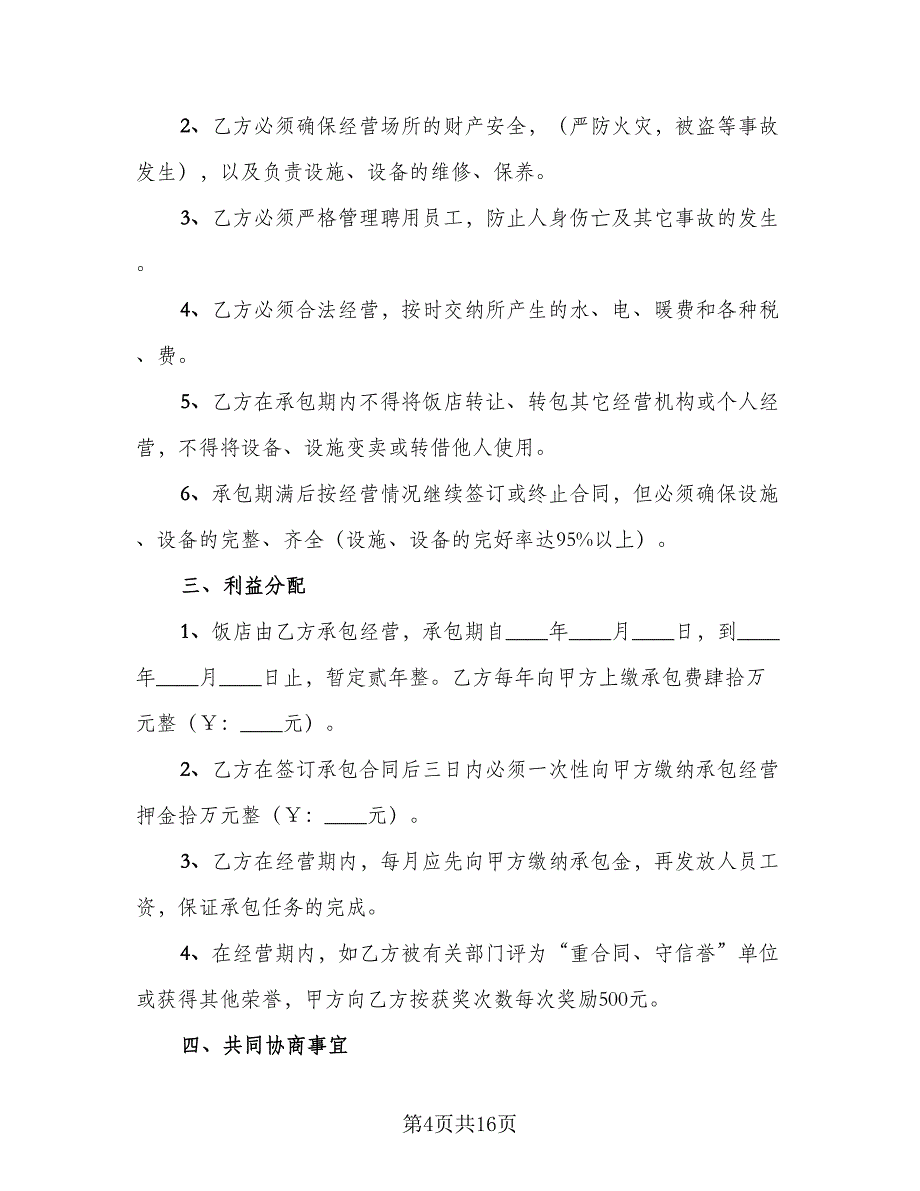 2、乙方必须确保经营场所的财产安全，（严防火灾，被盗等事故
发生），以及负责设施、设备的维修、保养。
3、乙方必须严格管理聘用员工，防止人身伤亡及其它事故的发生
。
4、乙方必须合法经营，按时交纳所产生的水、电、暖费和各种税
、费。
5、乙方在承包期内不得将饭店转让、转包其它经营机构或个人经
营，不得将设备、设施变卖或转借他人使用。
6、承包期满后按经营情况继续签订或终止合同，但必须确保设施
、设备的完整、齐全（设施、设备的完好率达95%以上）。
三、利益分配
1、饭店由乙方承包经营，承包期自____年____月____日，到____
年____月____日止，暂定贰年整。乙方每年向甲方上缴承包费肆拾万
元整（￥：____元）。
2、乙方在签订承包合同后三日内必须一次性向甲方缴纳承包经营
押金拾万元整（￥：____元）。
3、乙方在经营期内，每月应先向甲方缴纳承包金，再发放人员工
资，保证承包任务的完成。
4、在经营期内，如乙方被有关部门评为“重合同、守信誉”单位
或获得其他荣誉，甲方向乙方按获奖次数每次奖励500元。
四、共同协商事宜
第4页共16页